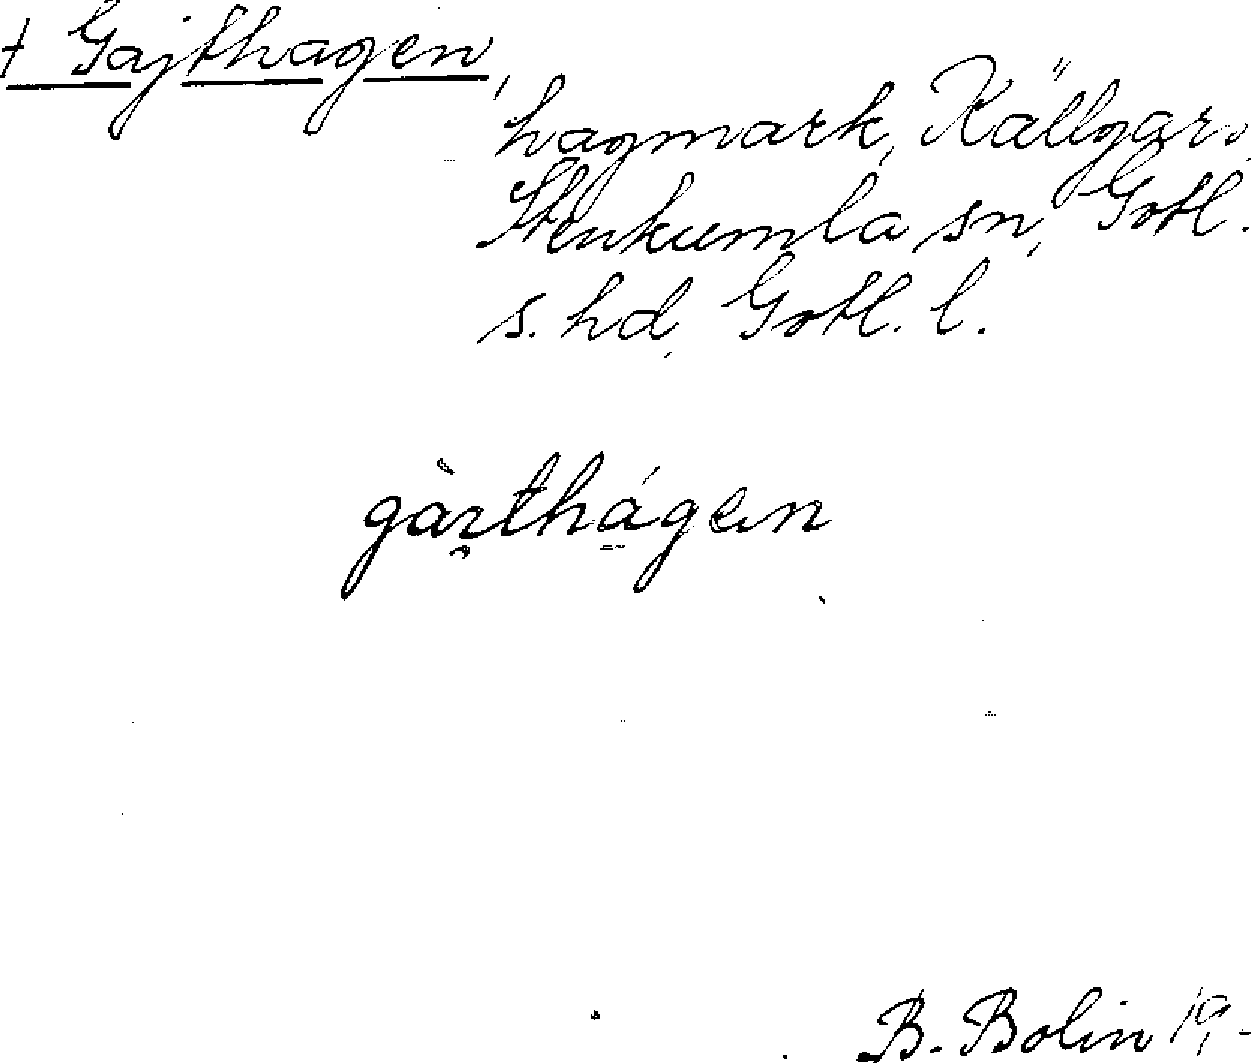 † Gajthagen,
hagmark, Källgar
Stenkumla sn, Gotl.
s. hd, Gotl. l.
gàṛthágen
B. Bolin 19